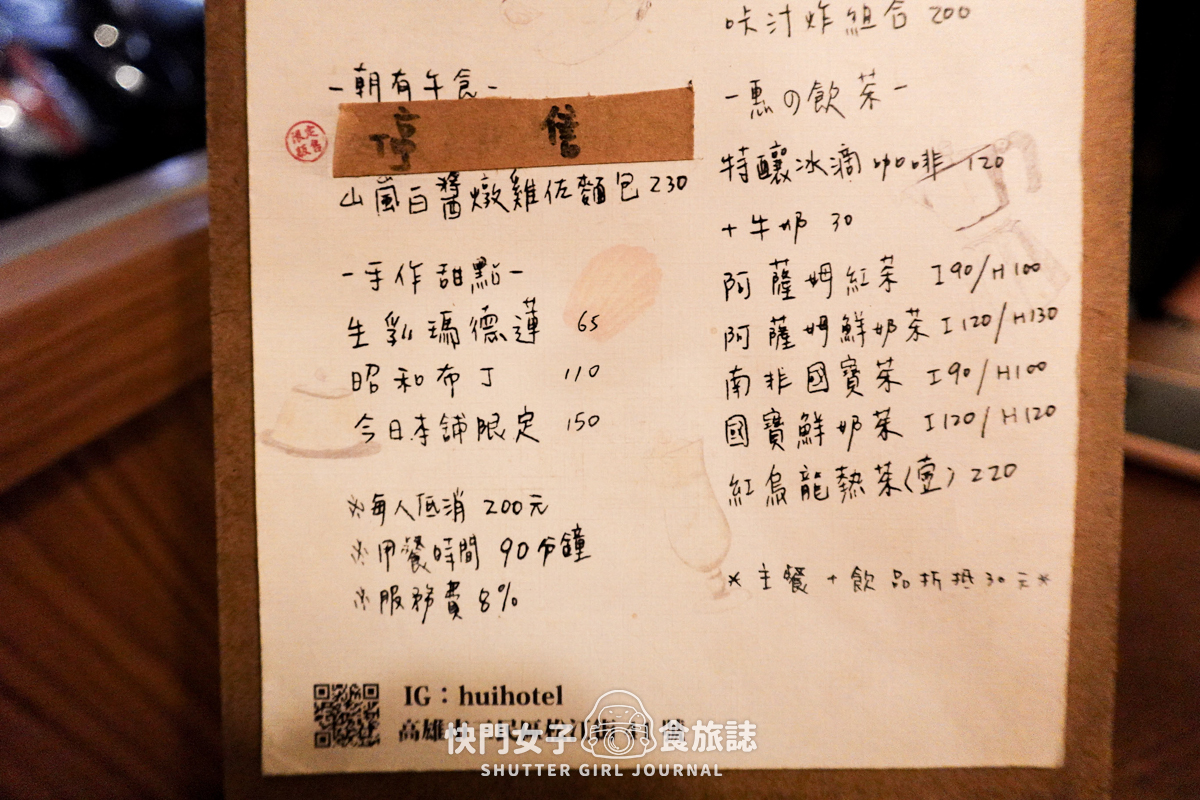 -朝有午食-
停 售
限定
販售
山嵐白醬燉雞佐麵包 230
-手作甜點-
生乳瑪德蓮 65
昭和布丁 110
今日本舖限定 150
※每人低消 200元
※用餐時間 90分鐘
※服務費 8%
IG：huihotel
高雄
咔汁炸組合 200
-惠の飲茶-
特釀冰滴咖啡 120
+牛奶 30
阿薩姆紅茶 I90/H100
阿薩姆鮮奶茶 I120/H130
南非國寶茶 I90/H100
國寶鮮奶茶 I120/H120
紅烏龍熱茶(壺) 220
*主餐+飲品折抵30元*
快門女子食旅誌
SHUTTER GIRL JOURNAL